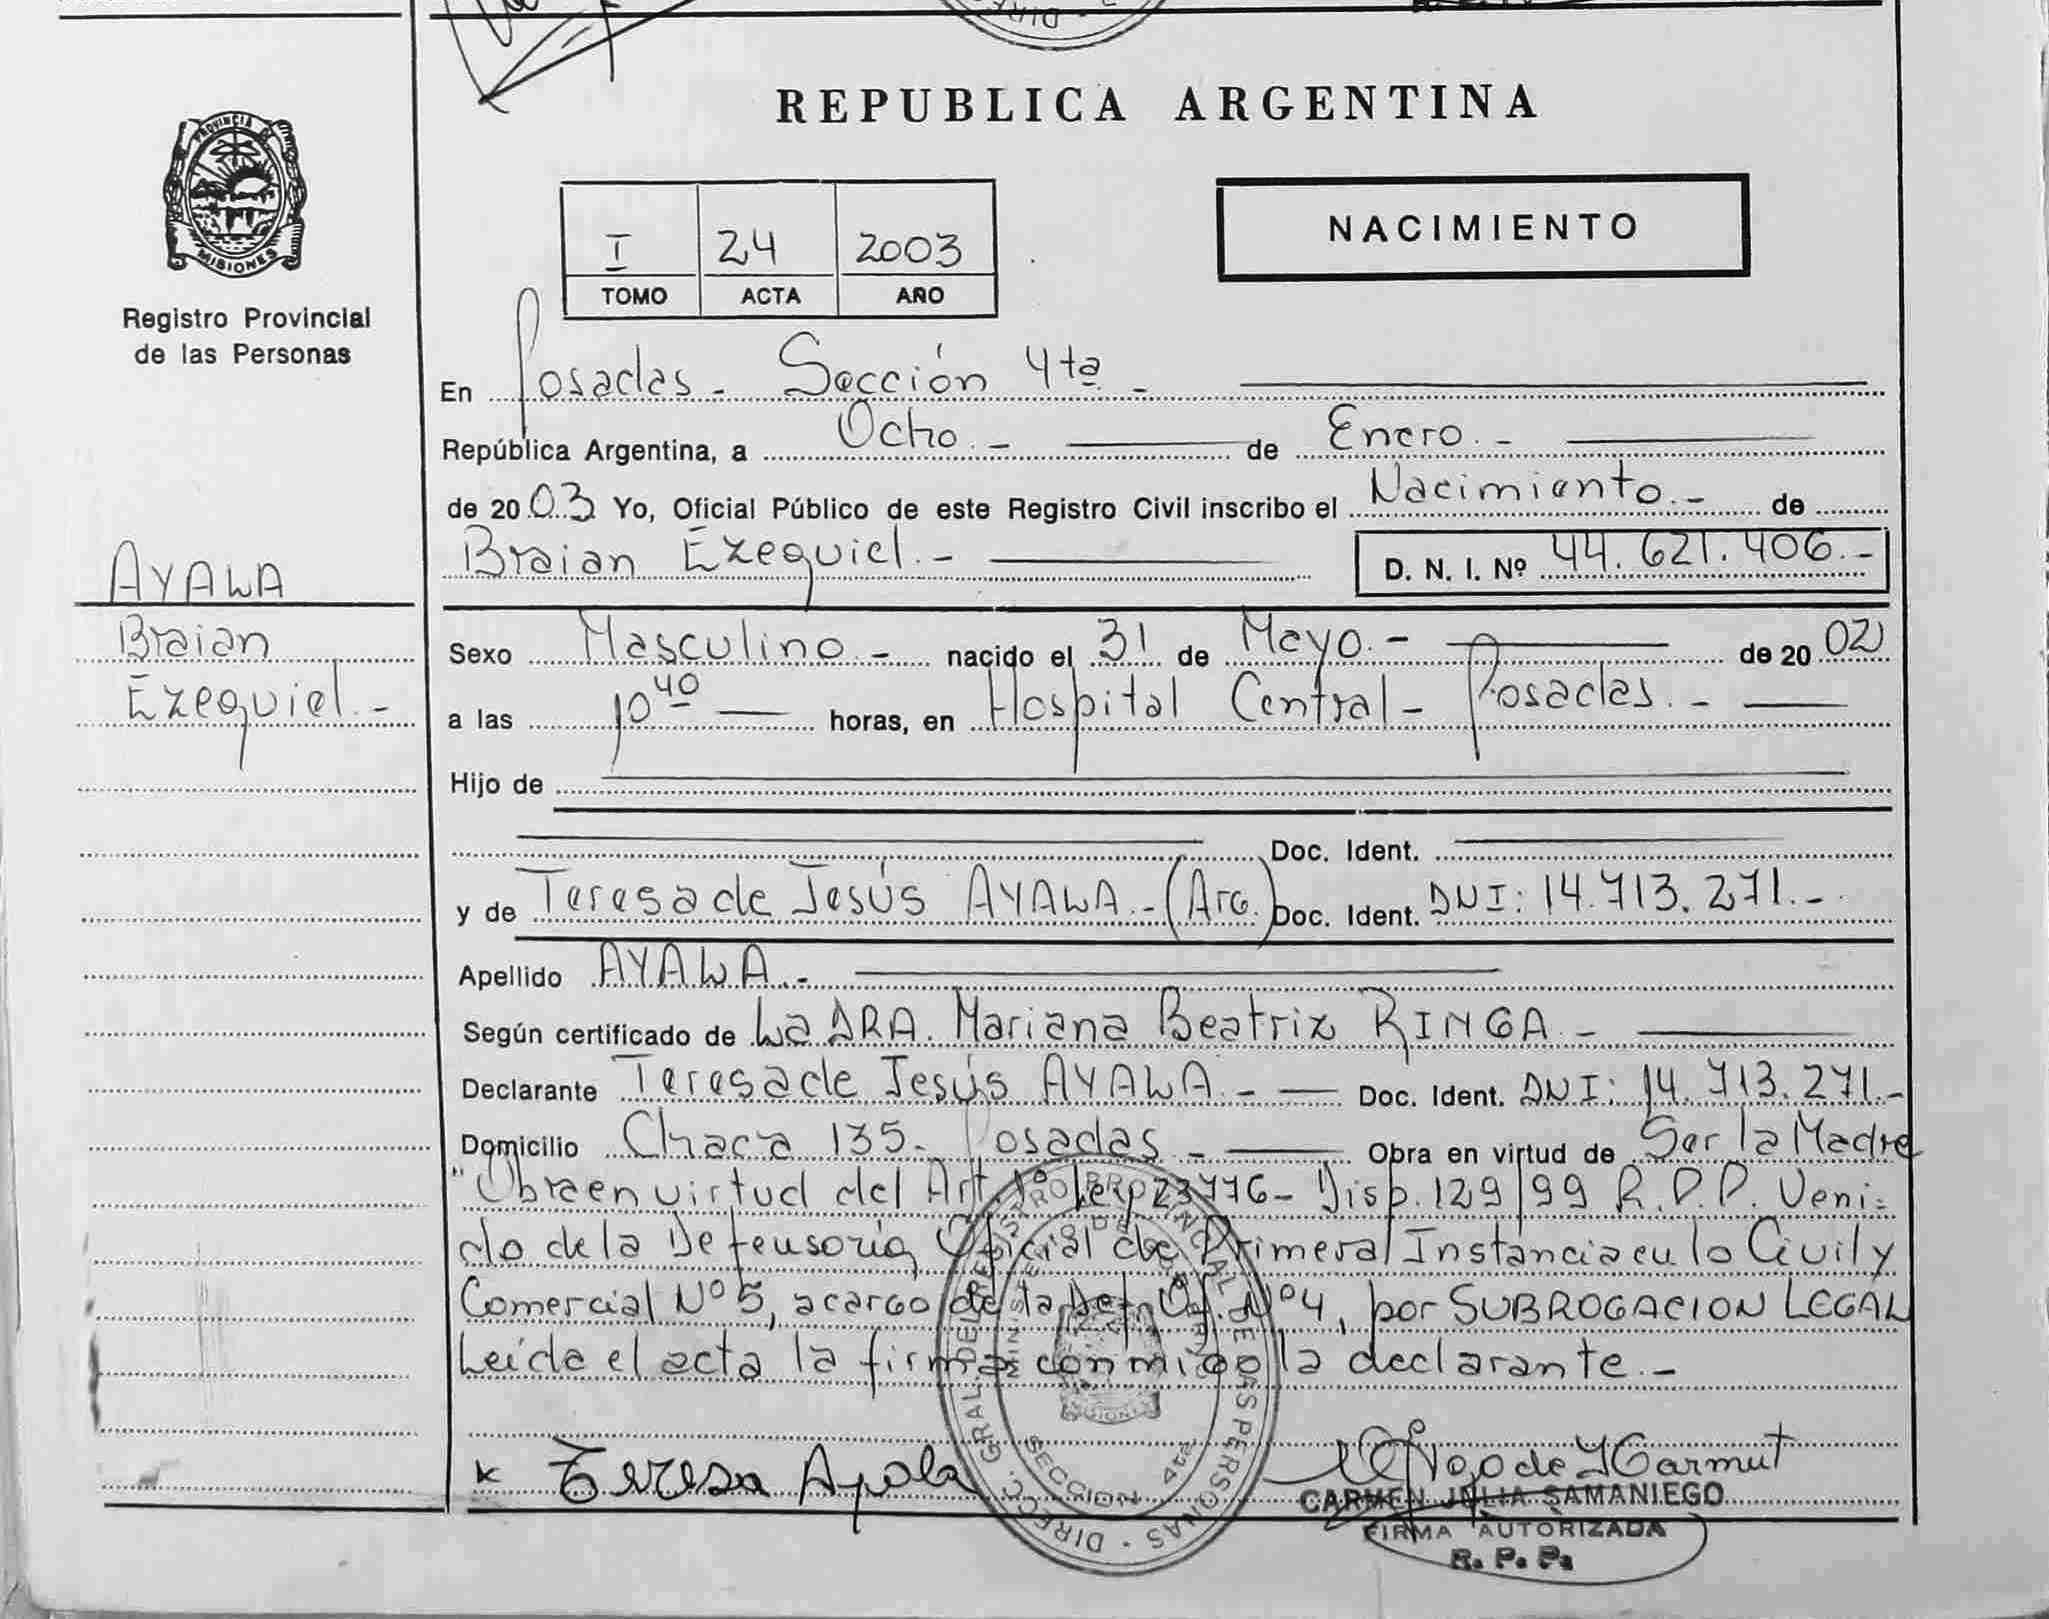 REPUBLICA ARGENTINA
PROVINCIA DE
MISIONES
Registro Provincial
de las Personas
I 24 2003
TOMO ACTA AÑO
NACIMIENTO
En Posadas - Sección 4ta -
República Argentina, a Ocho - de Enero. -
de 2003 Yo, Oficial Público de este Registro Civil inscribo el Nacimiento. - de
Braian Ezequiel. - D. N. I. Nº 44.621.406. -
AYALA
Braian
Ezequiel. -
Sexo Masculino. - nacido el 31 de Mayo. - de 2002
a las 10 40 horas, en Hospital Central - Posadas. -
Hijo de
Doc. Ident.
y de Teresa de Jesús AYALA. - (Arg.) Doc. Ident. DNI: 14.713.271. -
Apellido AYALA. -
Según certificado de La DRA. Mariana Beatriz RINGA -
Declarante Teresa de Jesús AYALA. - Doc. Ident. DNI: 14.713.271. -
Domicilio Chacra 135 - Posadas - Obra en virtud de Ser la Madre
"Obra en virtud del Art. 1º Ley 23776 - Disp. 129/99 R.P.P. Veni-
do de la Defensoria Oficial de Primera Instancia en lo Civil y
Comercial Nº 5, a cargo de la Def. Of. Nº 4, por SUBROGACION LEGAL
Leida el acta la firma conmigo la declarante. -
Teresa Ayala
CARMEN JULIA SAMANIEGO
FIRMA AUTORIZADA
R. P. P.
DIRECC. GRAL. DEL REGISTRO PROVINCIAL DE LAS PERSONAS
SECCION 4ta